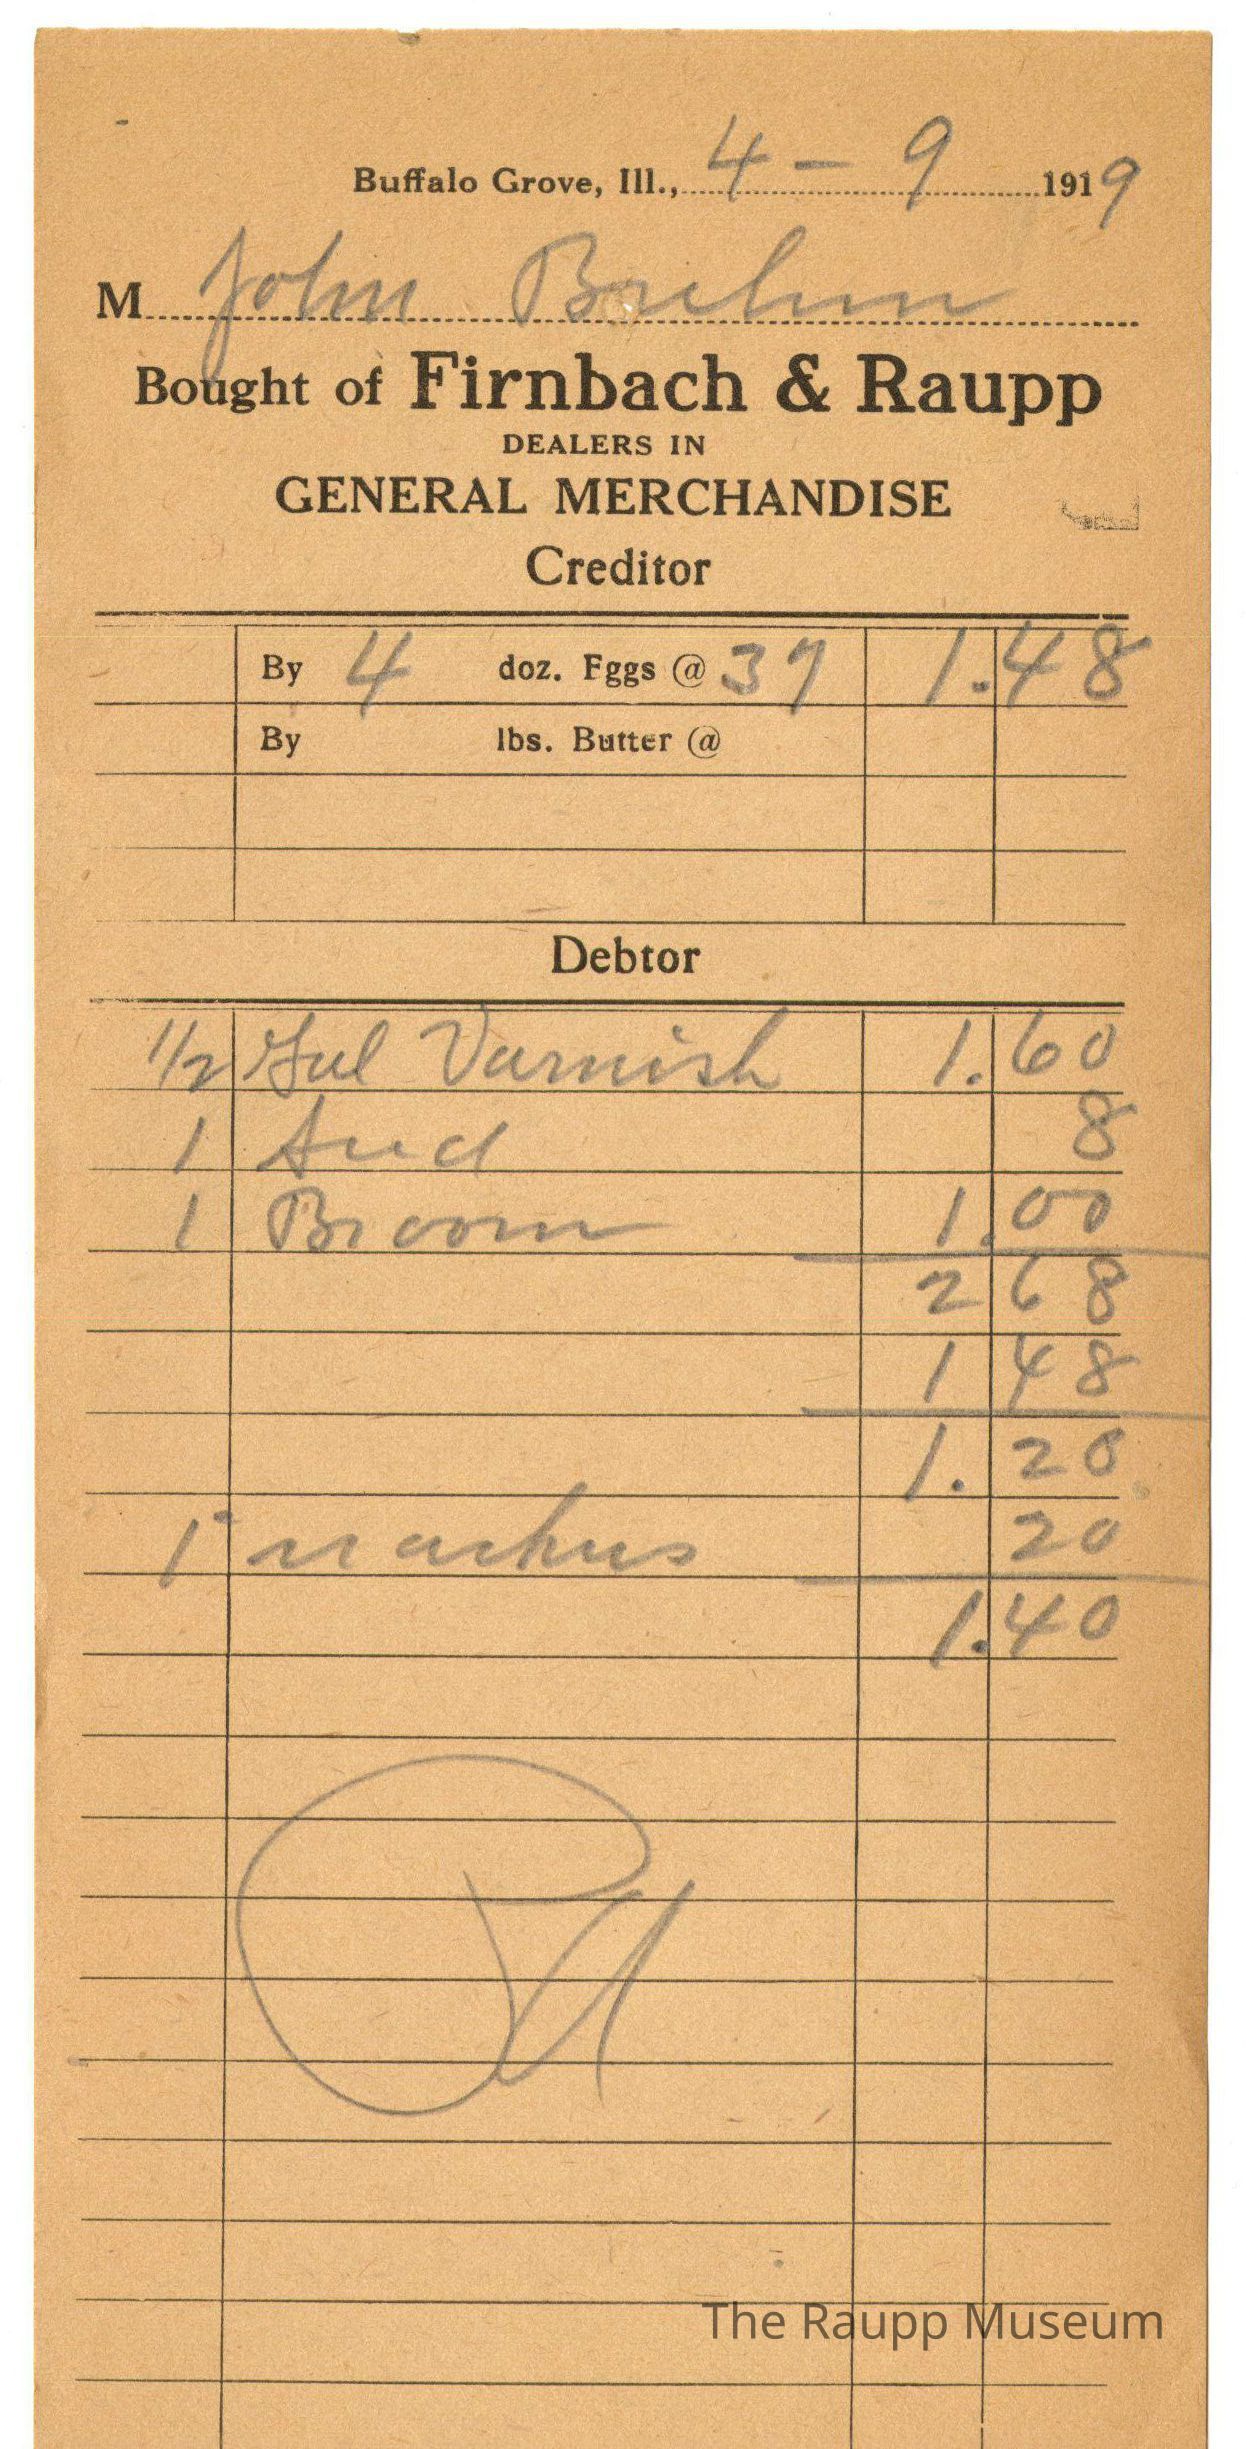 Buffalo Grove, Ill., 4 - 9 1919
M John Brehm
Bought of Firnbach & Raupp
DEALERS IN
GENERAL MERCHANDISE
Creditor
By 4 doz. Eggs @ 37 1.48
By lbs. Butter @
Debtor
1/2 Gal Varnish 1.60
1 8
1 Broom 1.00
2 68
1 48
1. 20
1 20
1.40
The Raupp Museum